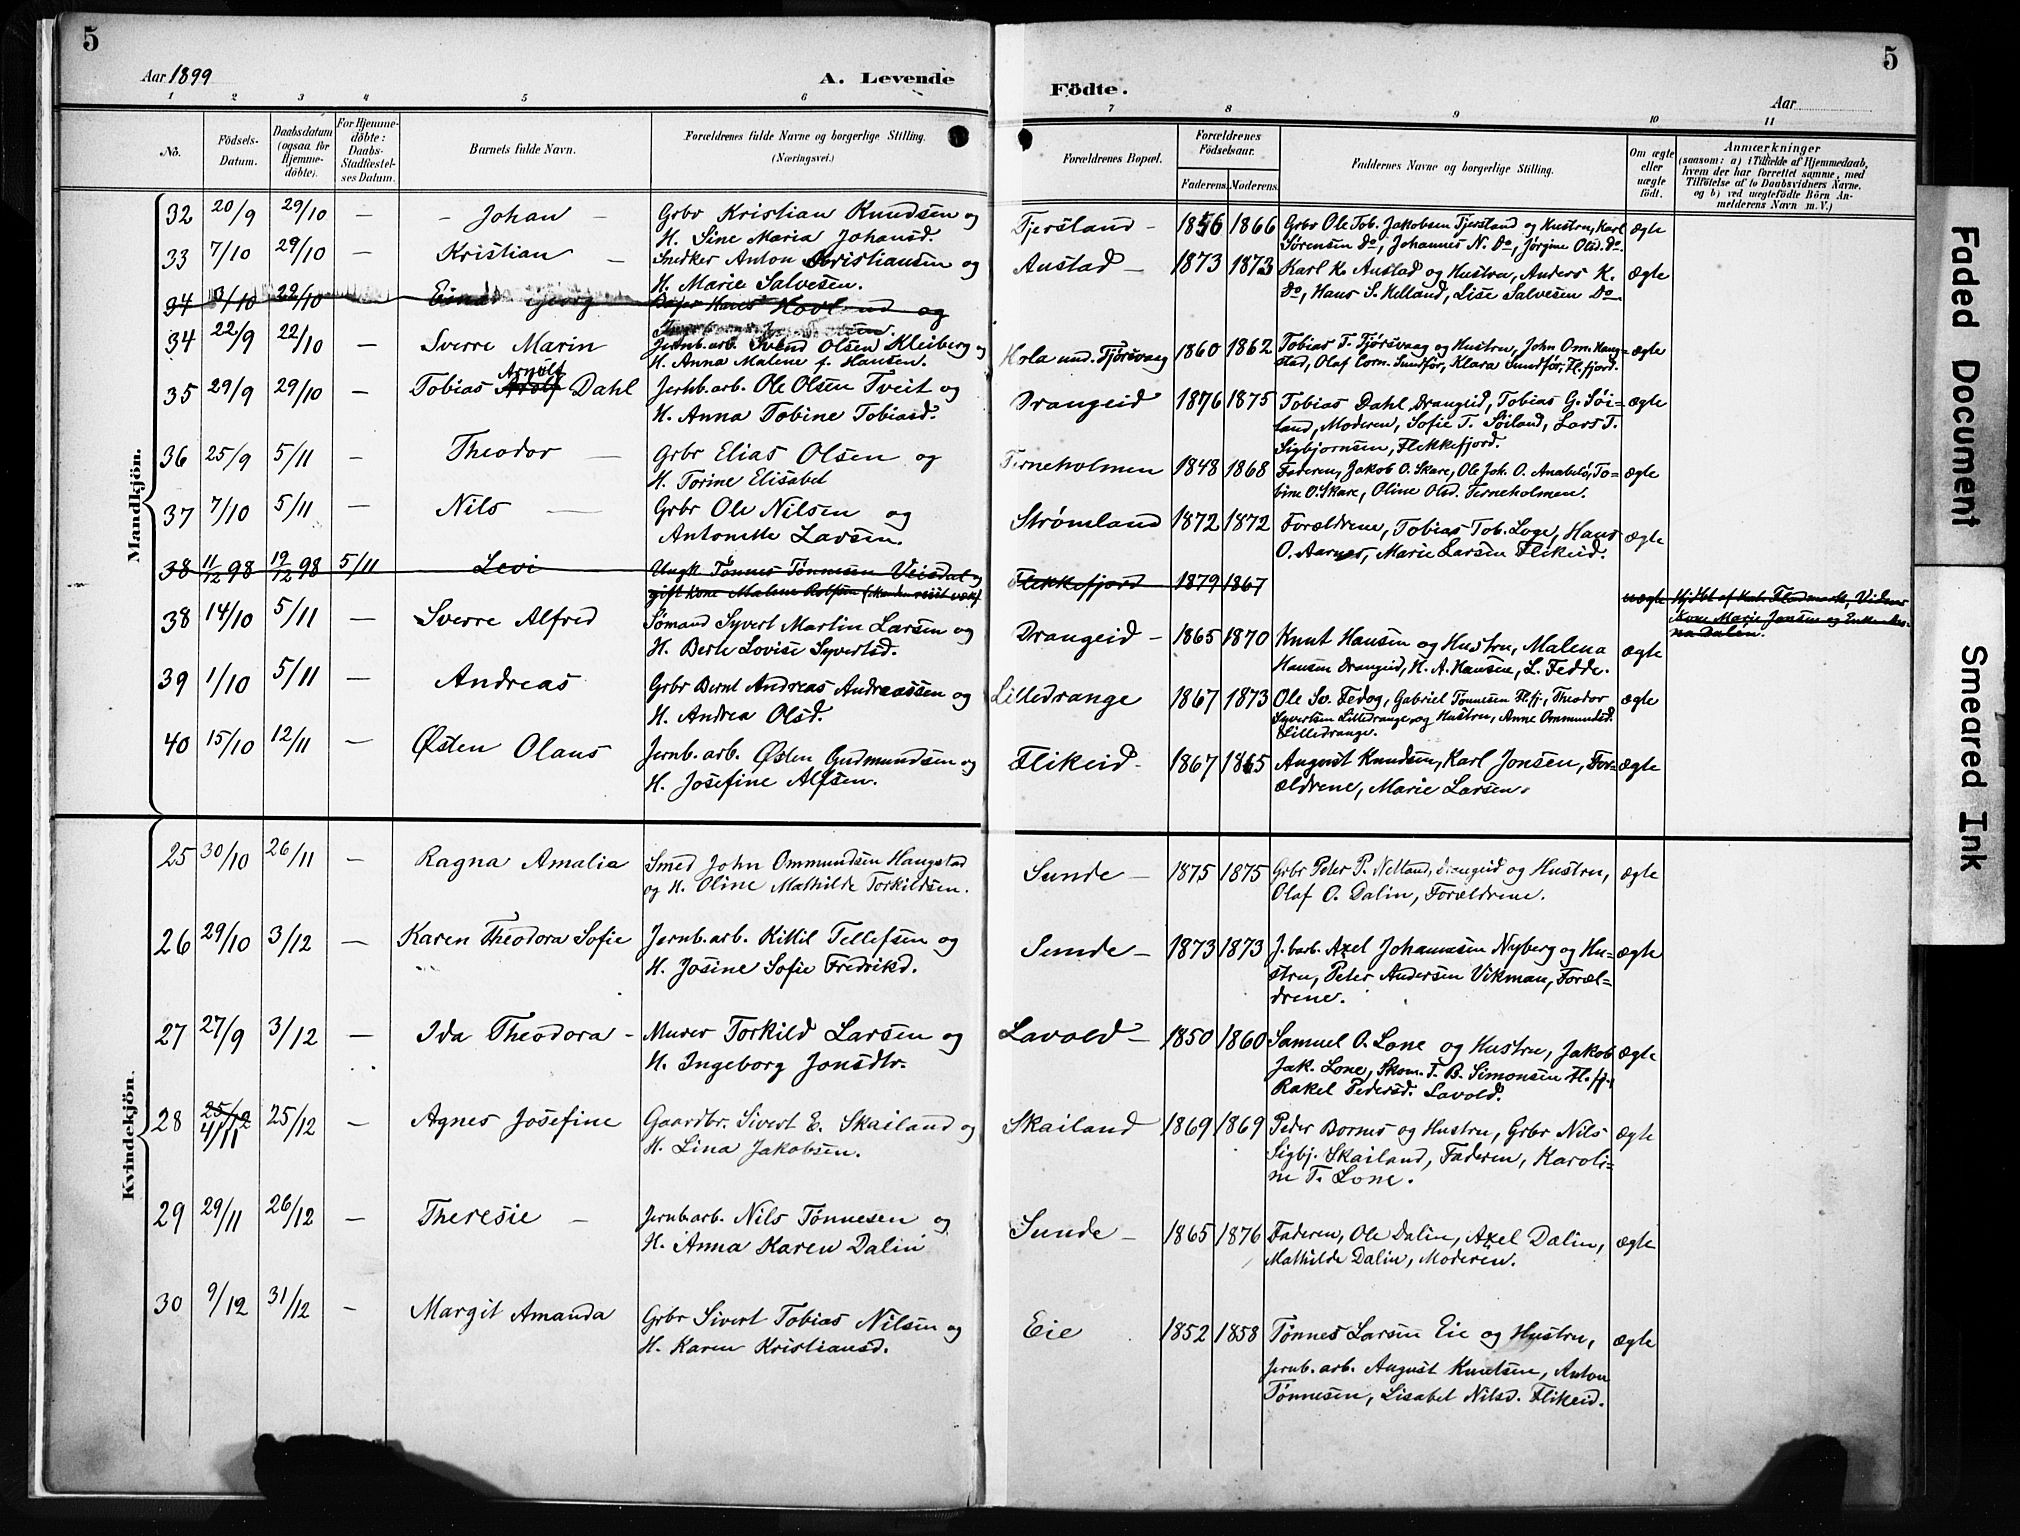 5
5
Aar 1899
A. Levende
Födte.
Aar
1 2 3 4 5 6 7 8 9 10 11
No.
Födsels-
Datum.
Daabsdatum
(ogsaa for
Hjemme-
döbte).
For Hjemme-
döbte:
Daabs-
Stadfæstel-
ses Datum.
Barnets fulde Navn.
Forældrenes fulde Navne og borgerlige Stilling.
(Næringsvei.)
Forældrenes Bopæl.
Forældrenes
Födselsaar.
Faderens. Moderens.
Faddernes Navne og borgerlige Stilling.
Om ægte
eller
uægte
födt.
Anmærkninger
(saasom: a) i Tilfælde af Hjemmedaab,
hvem der har forrettet samme, med
Tilföielse af to Daabsvidners Navne,
og b) ved uegtefödte Börn An-
melderens Navn m. V.)
Mandkjön.
32 20/9 29/10 — - Johan - Grbr Kristian Knudsen og
H. Sine Maria Johansd.
Tjersland - 1856 1866 Grbr Ole Tob. Jakobsen Tjersland og Hustru, Karl ægte
Sørensen Do, Johannes N. Do, Jørgine Olsd. Do.
33 7/10 29/10 — Kristian - Snedker Anton Kristiansen og
H. Marie Salvesen.
Austad - 1873 1873 Karl K. Austad og Hustru, Anders K. ægte
Do, Hans S. Kelland, Lise Salvesen Do.
34 3/10 22/10 Georg
og
34 22/9 22/10 — Sverre Marin Jernb. arb. Svend Olsen Kleiberg og
H. Anna Malene f. Hansen.
Hola und. Tjørsvaag 1860 1862 Tobias T. Tjørsvaag og Hustru, John Om. Haug= ægte
stad, Olaf Corn. Sundfør, Klara Sundfør, Fl.fjord.
35 29/9 29/10 — Tobias Arnolf Dahl Jernb. arb. Ole Olsen Tveit og
H. Anna Tobine Tobiasd.
Drangeid 1876 1875 Tobias Dahl Drangeid, Tobias G. Söi= ægte
land, Moderen, Sofie T. Söiland, Lars T.
Sigbjørnsen, Flekkefjord.
36 25/9 5/11 — Theodor - Grbr Elias Olsen og
H. Torine Elisabet
Terneholmen 1848 1868 Faderen, Jakob O. Skare, Ole Joh. O. Anabelø, To= ægte
bine O. Skare, Oline Olsd. Terneholmen.
37 7/10 5/11 — Nils — Grbr Ole Nilsen og
Antonette Larsen.
Strømland 1872 1872 Forældrene, Tobias Tob. Loge, Hans ægte
O. Aarnes, Marie Larsen Flikeid.
38 11/12 98 19/12 98 5/11 Levi Ungk. Tønnes Tønnesen Veisdal og
gift Kone Malene
Flekkefjord 1879 1867 uægte Hjdbt af
Kone Marie Jansen og Enke
Dalen.
38 14/10 5/11 — Sverre Alfred Sømand Syvert Martin Larsen og
H. Berte Lovise Syvertsd.
Drangeid - 1865 1870 Knut Hansen og Hustru, Malena ægte
Hansen Drangeid, H. A. Hansen, L. Fedde.
39 1/10 5/11 — Andreas Grbr Bernt Andreas Andreassen og
H. Andrea Olsd.
Lilledrange 1867 1873 Ole Sv. Fedog, Gabriel Tønnesen Fl.fj, Theodor ægte
Syvertsen Lilledrange, og Hustru, Anne Ommundsd.
Lilledrange.
40 15/10 12/11 — Østen Olaus Jernb. arb. Østen Gudmundsen og
H. Josefine Alfsen.
Flikeid. 1867 1865 August Knudsen, Karl Jonsen, For= ægte
ældrene, Marie Larsen.
Kvindekjön.
25 30/10 26/11 — Ragna Amalia Smed John Ommundsen Haugstad
og H. Oline Mathilde Torkildsen.
Sunde - 1875 1875 Grbr Peter P. Netland, Drangeid og Hustru, ægte
Olaf O. Dalin, Forældrene.
26 29/10 3/12 — Karen Theodora Sofie Jernb. arb. Kittil Tellefsen og
H. Josine Sofie Fredrikd.
Sunde - 1873 1873 J. barb. Axel Johannesen Nyberg og Hu= ægte
stru, Peter Andersen Vikman, Foræl=
drene.
27 27/9 3/12 — Ida Theodora - Murer Torkild Larsen og
H. Ingeborg Jonsdtr.
Lavold - 1850 1860 Samuel O. Lone og Hustru, Jakob ægte
Jak. Lone, Skom. T. B. Simonsen Fl.fj.,
Rakel Pedersd. Lavold.
28 25/12 4/11 25/12 — Agnes Josefine Gaardbr. Sivert E. Skailand og
H. Lina Jakobsen.
Skailand 1869 1869 Peder Bornes og Hustru, Grbr Nils ægte
Sigbj. Skailand, Faderen, Karoli=
ne T. Lone.
29 29/11 26/12 — Theresie - Jernb. arb. Nils Tønnesen og
H. Anna Karen Dalin
Sunde - 1865 1876 Faderen, Ole Dalin, Axel Dalin, ægte
Mathilde Dalin, Moderen.
30 9/12 31/12 - Margit Amanda Grbr Sivert Tobias Nilsen og
H. Karen Kristiansd.
Eie 1852 1858 Tønnes Larsen Eie og Hustru, ægte
Jernb. arb. August Knutsen, Anton
Tønnesen, Lisabet Nilsd. Flikeid.
Faded Document
Smeared Ink